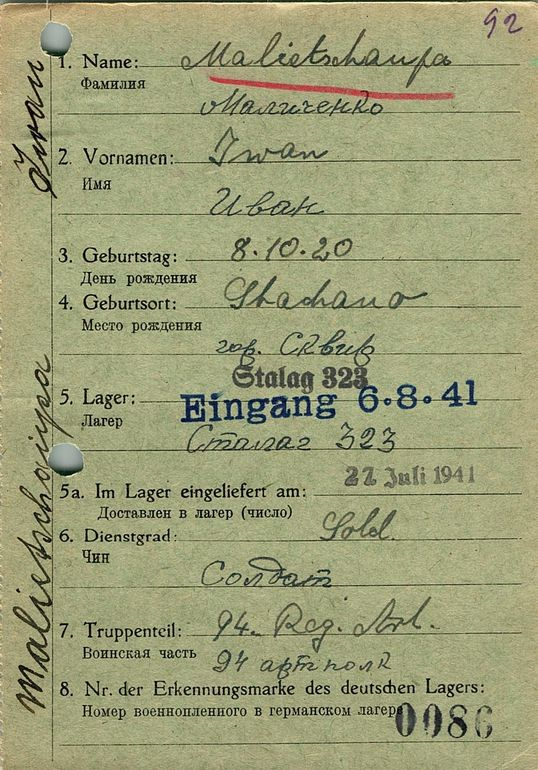 92
1. Name: Malietschaupa
Фамилия
Маличенко
2. Vornamen: Iwan
Имя
Иван
3. Geburtstag: 8.10.20
День рождения
4. Geburtsort:
Место рождения
гор. Сквир
Stalag 323
5. Lager: Eingang 6.8.41
Лагер
Сталаг 323
27. Juli 1941
5a. Im Lager eingeliefert am:
Доставлен в лагер (число)
6. Dienstgrad: Sold.
Чин
Солдат
7. Truppenteil: 94. Reg. Art.
Воинская часть
94 артполк
8. Nr. der Erkennungsmarke des deutschen Lagers:
Номер военнопленного в германском лагере
0086
Iwan